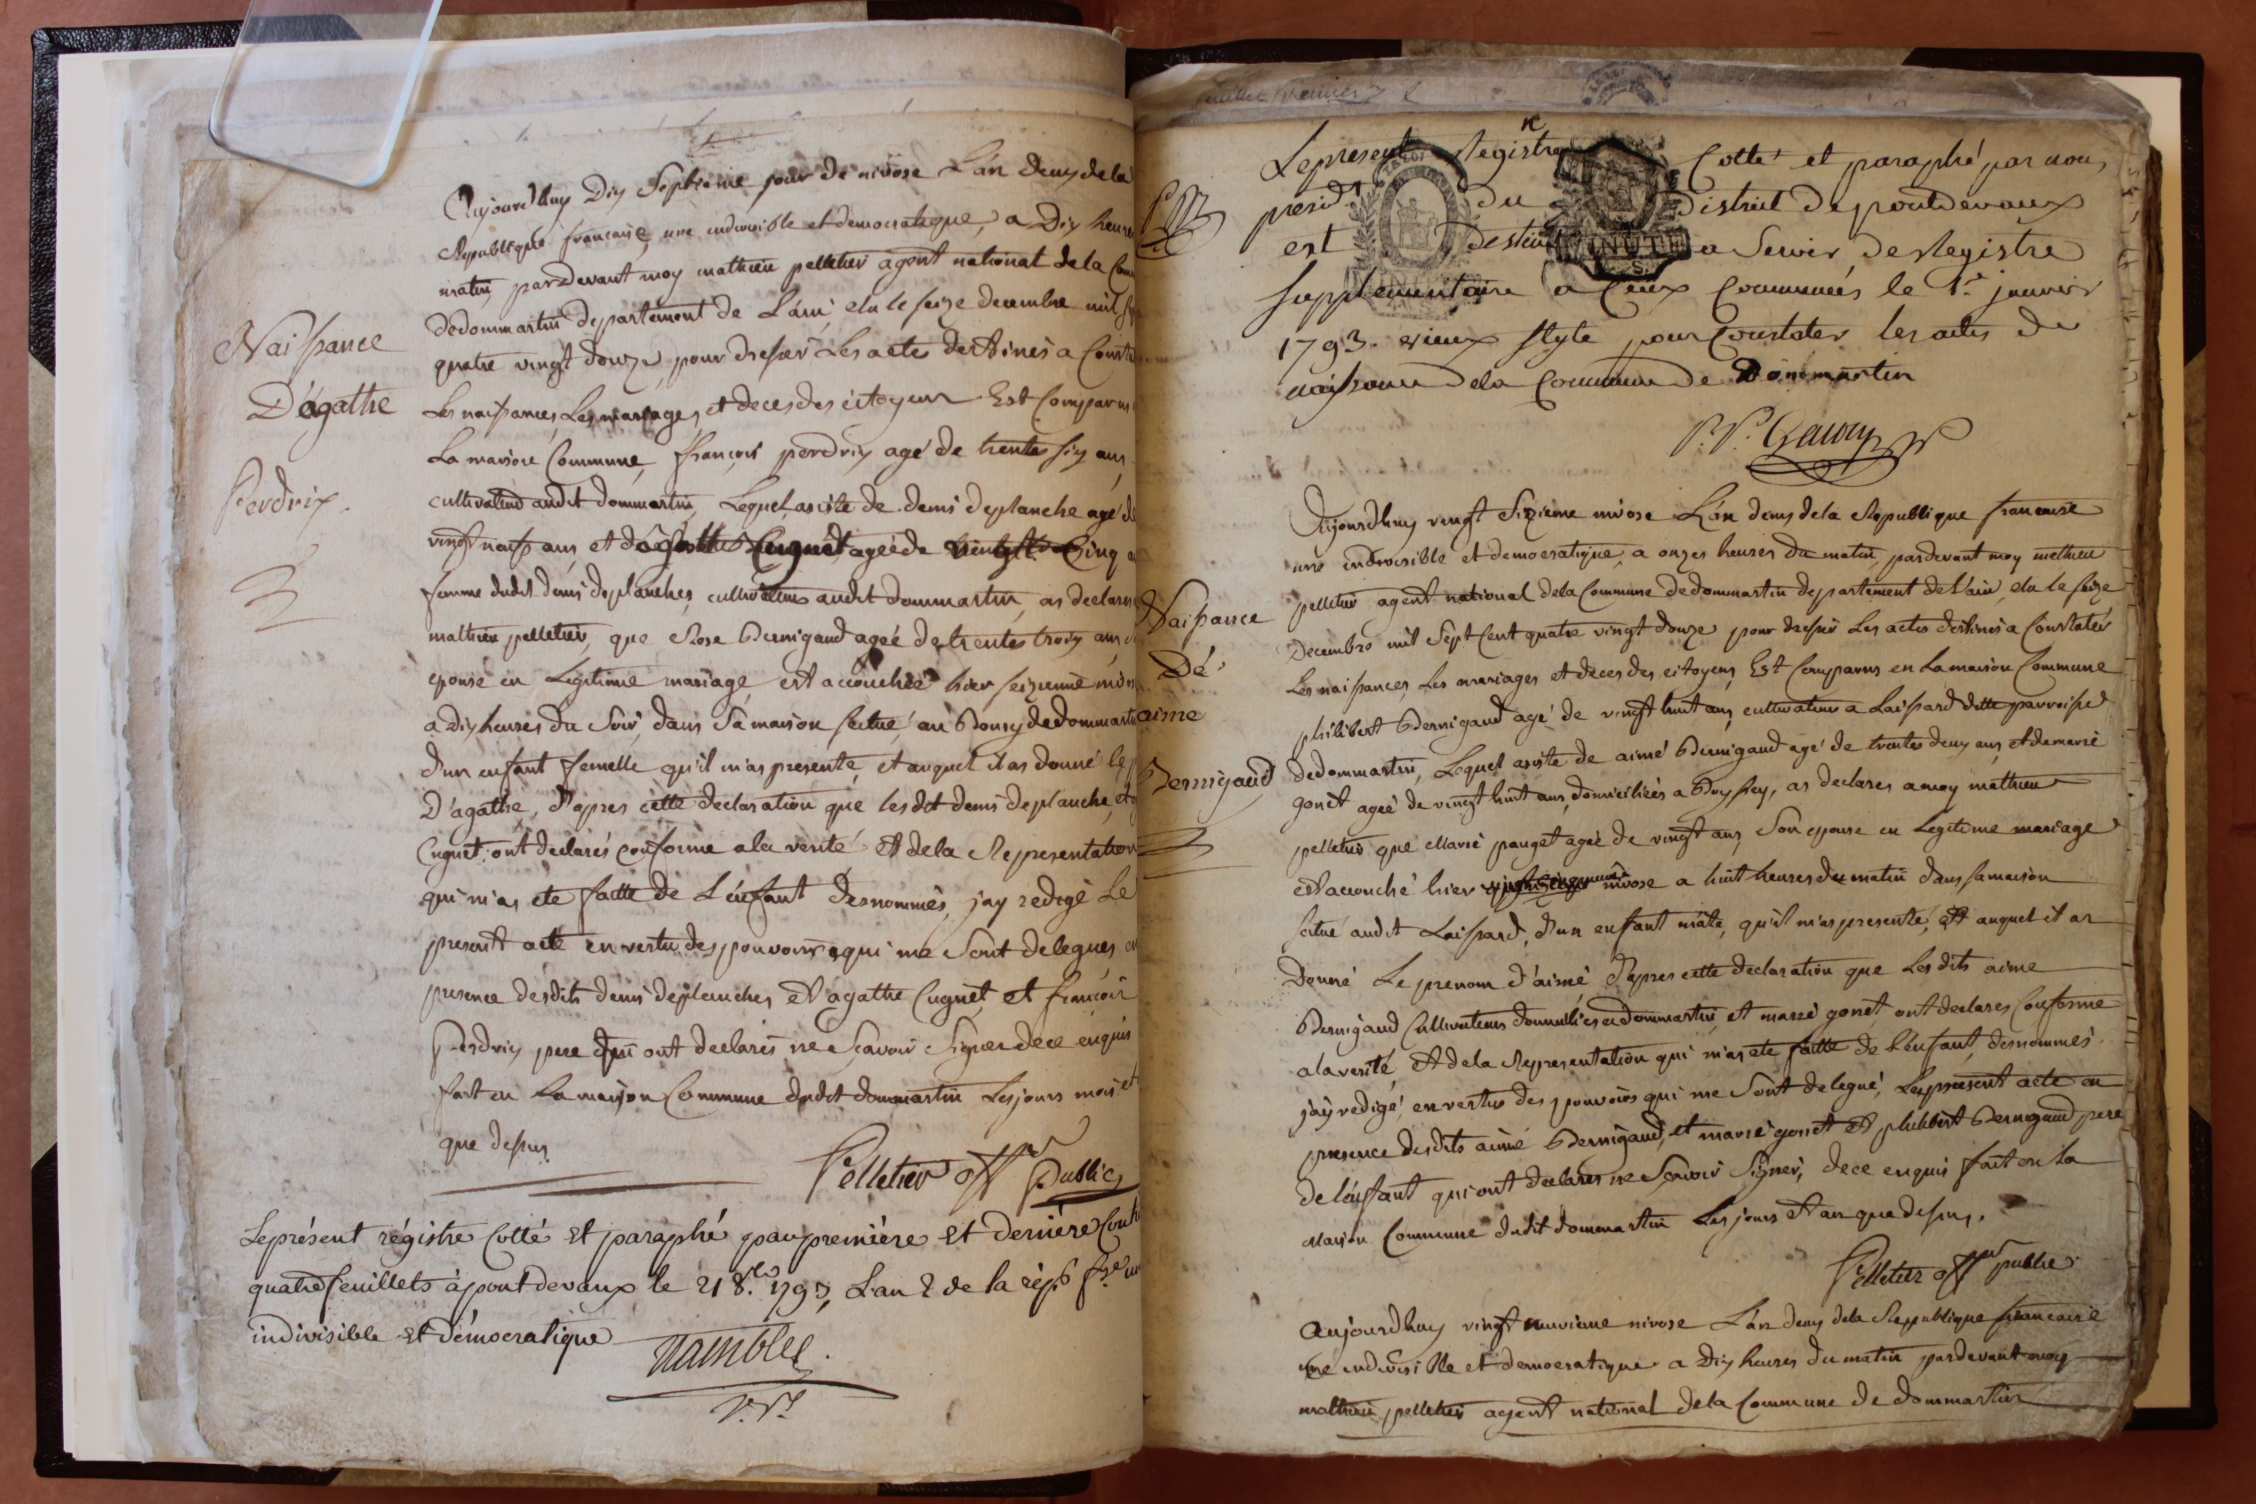 Aujourdhuy Dix Septieme jour de nivose L'an deux de la
Republique francaise, une indivisible et democratique, a Dix heures
matin, pardevant moy mathieu pelletier agent national de la Com
de dommartin departement de L'ain, elu le seize decembre mil s
quatre vingt douze pour dresser Les actes destinés a Const
Les naissances, Les mariages, et deces des citoyens Est Comparus
La maison Commune, françois perdrix agé de trentes six ans,
cultivateur audit dommartin, Lequel assisté de denis deplanche agé de
vingt neuf ans, et d'agathe Cugnet, ageé de Cinq
femme dudit denis deplanches, cultivateur audit dommartin, as declarer
mathieu pelletier, que Rose Bernigaud ageé de trentes trois ans,
epouse en Legitime mariage est accouchée hier seizieme nivos
a dix heures du Soir, dans Sa maison scitué au Bourg de dommartin
d'un enfant femelle qu'il m'as presenté, et auquel il as donné le p
D'agathe, D'apres cette declaration que lesdit denis deplanche, et
Cugnet, ont declarés conforme a la verité Et de la Representation
qui m'as eté faitte de L'enfant denommés, j'ay redigé Le
present acte en vertu des pouvoirs qui me Sont delegués, en
presence désdits denis deplanches Et agathe Cugnet, et françois
Perdrix pere qui ont declarés ne Scavoir Signer de ce enquis
fait en La maison Commune dudit dommartin Les jours mois et
que dessus
Pelletier off public
Naissance
D'agathe
Perdrix.
Le présent régistre Cotté Et paraphé par première Et dernière Cont
quatre feuillets à pont devaux le 21 8. 1793, L'an 2 de la rép f
indivisible Et démocratique
feuillet premier
Le present Registre Cotté et paraphé par nous
presid. du District de pontdevaux
est destiné a Servir de Registre
Supplementaire a Ceux Commencés le 1er janvier
1793. vieux Style pour Constater les actes de
naissance dela Commune de Dommartin
MINUTE
Naissance
Dé
aimé
Bernigaud
Aujourdhuy vingt Sixieme nivose L'an deux dela Republique francaise
une indivisible et democratique, a onzes heures du matin, pardevant moy mathieu
pelletier agent national dela Commune de dommartin departement de L'ain, elu le seize
Decembre mil Sept Cent quatre vingt douze pour dresser Les actes destinés a Constater
Les naissances, Les mariages et deces des citoyens Est Comparus en La maison Commune
philibert Bernigaud agé de vingt huit ans cultivateur a Laissard ditte parroisse
de dommartin, Lequel assisté de aimé Bernigaud agé de trentes deux ans, et de marie
gonet ageé de vingt huit ans, domiciliés a Boyssey, as declares a moy mathieu
pelletier que Marie pauget ageé de vingt ans, Son epouse en Legitime mariage
est accouché hier nivose a huit heures du matin dans sa maison
scitué audit Laissard, d'un enfant mâle, qu'il m'as presenté, Et auquel il as
Donné Le prenom d'aimé D'apres cette declaration que Les dits aimé
Bernigaud Cultivateurs domiciliés a dommartin, et marie gonet ont declarés Conforme
a la verité Et de la Representation qui m'as eté faitte de L'enfant, denommés
j'ay redigé en vertus des pouvoirs qui me Sont delegué, Le present acte en
presence desdits aimé Bernigaud, et marie gonet Et philibert Bernigaud pere
de L'enfant qui ont declarés ne Scavoir Signer, de ce enquis fait en La
Maison Commune dudit dommartin Les jours Et an que dessus.
Pelletier off public
Aujourdhuy vingt neuvieme nivose L'an deux dela Republique francaise
une indivisible et democratique a Dix heures du matin pardevant moy
mathieu pelletier agent national dela Commune de dommartin